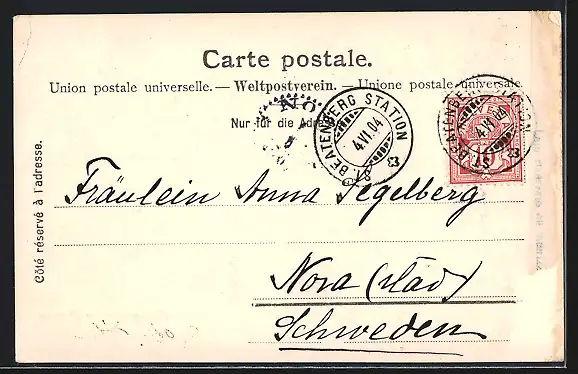 Carte postale.
Union postale universelle. — Weltpostverein. — Unione postale universale
Nur für die Adresse
NO
ST. BEATENBERG STATION
4.VI.04
ST. BEATENBERG STATION
4.VI.04
10
Côté réservé à l'adresse.
Fräulein Anna Segelberg
Nora (stad)
Schweden